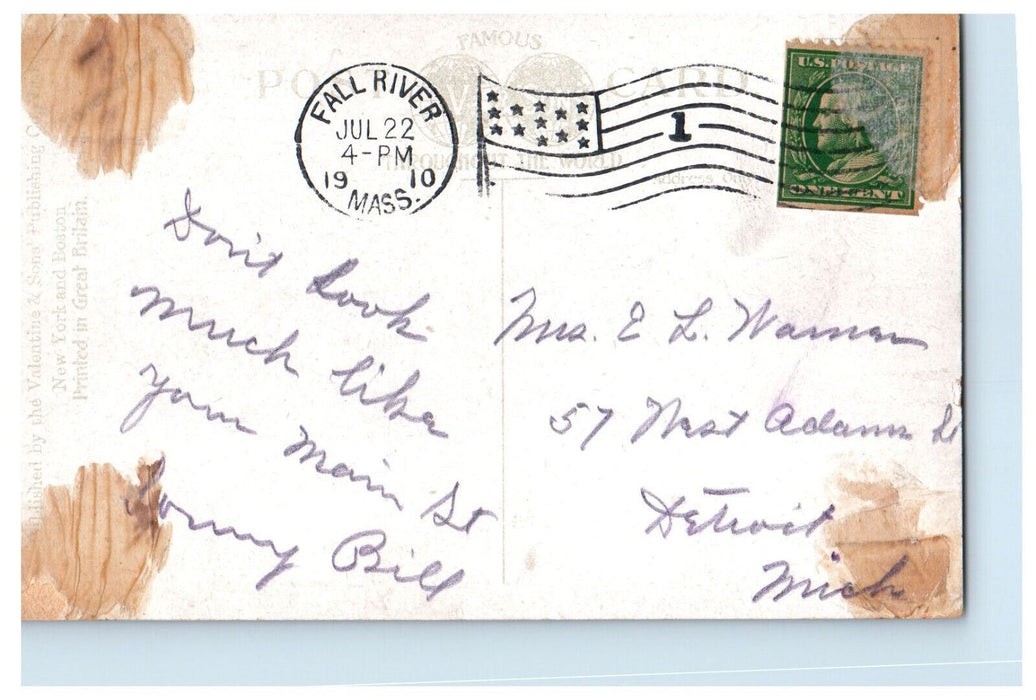 FAMOUS
POST CARD
THROUGHOUT THE WORLD
FALL RIVER
JUL 22
4-PM
19 10
MASS.
1
U.S. POSTAGE
ONE CENT
Address
Published by the Valentine & Sons' Publishing
New York and Boston
Printed in Great Britain.
Don't look
much like
your Main St
Bill
Mrs. E L. Warman
57 West Adams St
Detroit
Mich